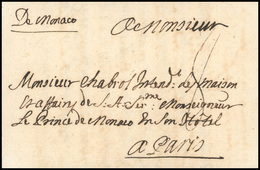 De Monaco
A Monsieur
Monsieur Chabrol Intend.t de maison
et affairs de S. A. Sir.me Monseigneur
Le Prince de Monaco En Son Hôtel
a Paris